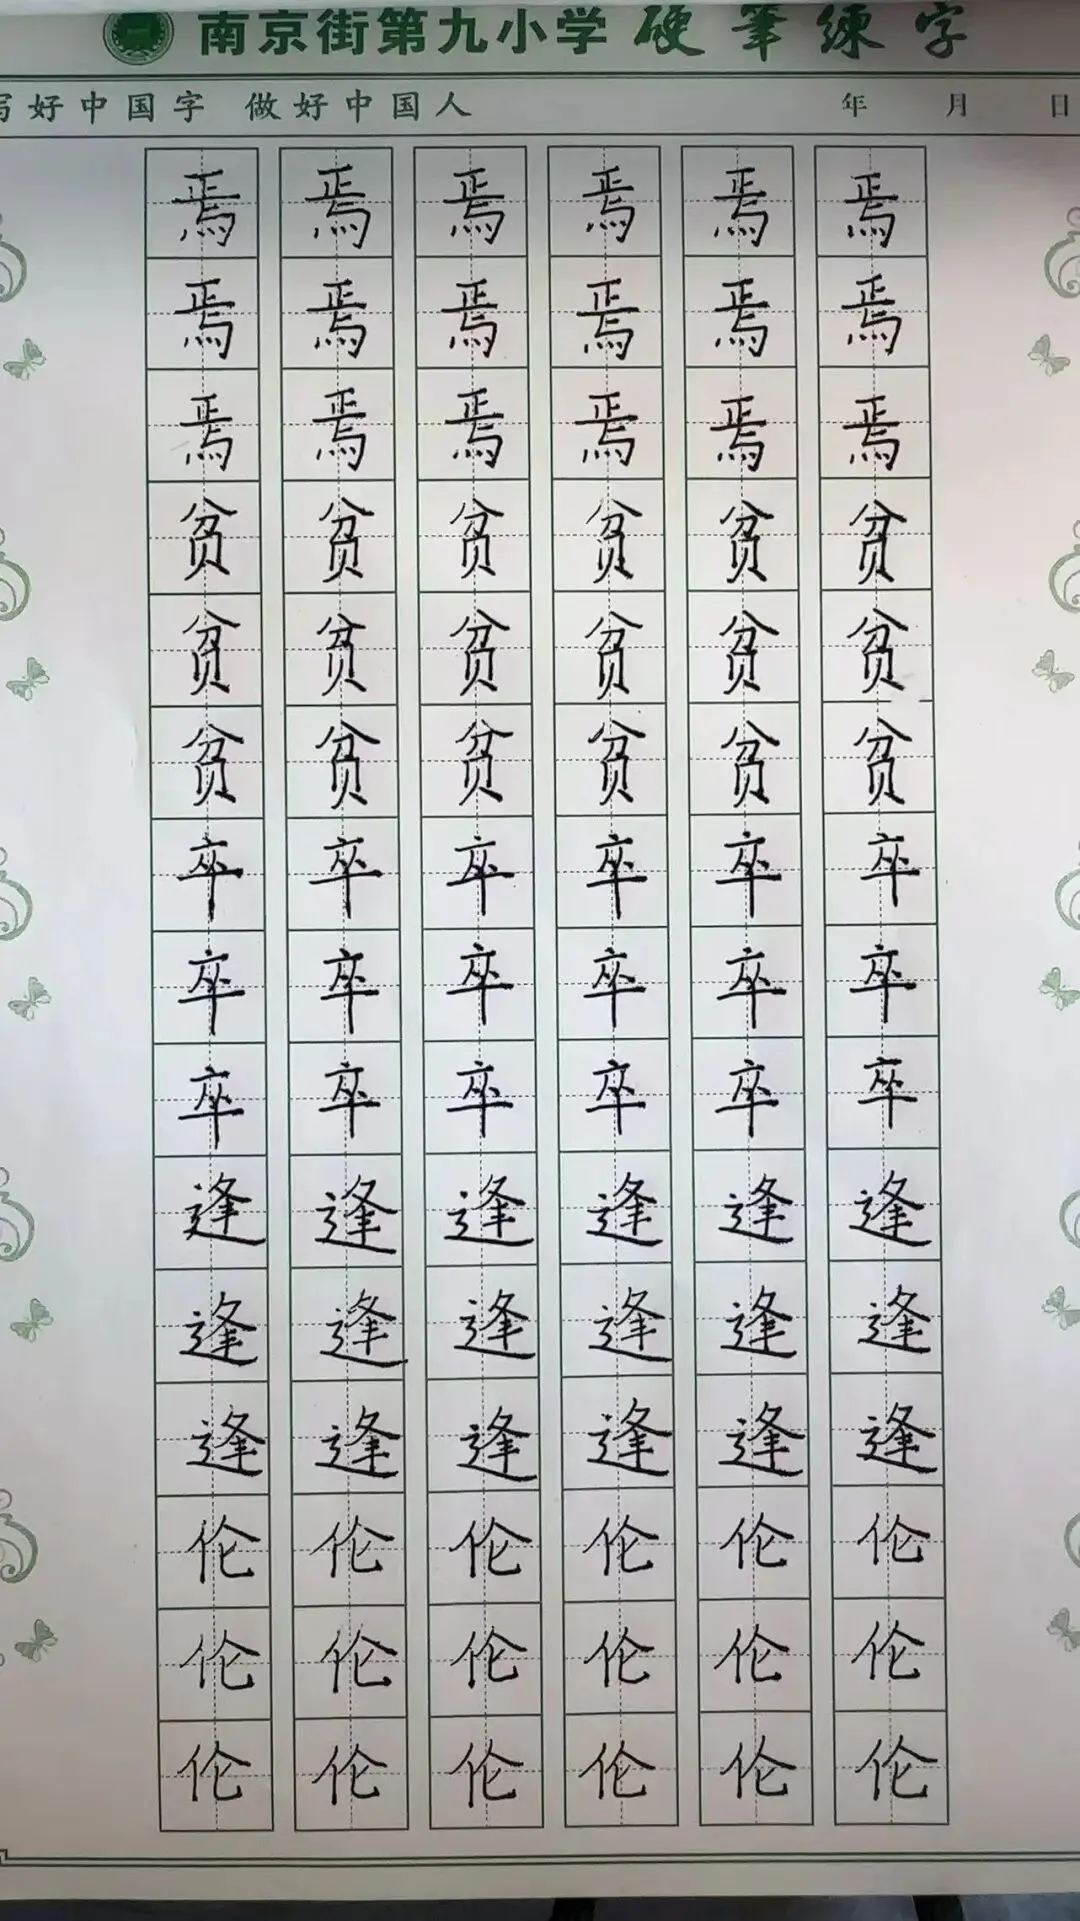 南京街第九小学 硬笔练字
写好中国字 做好中国人 年 月 日
焉 焉 焉 焉 焉 焉
焉 焉 焉 焉 焉 焉
焉 焉 焉 焉 焉 焉
贫 贫 贫 贫 贫 贫
贫 贫 贫 贫 贫 贫
贫 贫 贫 贫 贫 贫
卒 卒 卒 卒 卒 卒
卒 卒 卒 卒 卒 卒
卒 卒 卒 卒 卒 卒
逢 逢 逢 逢 逢 逢
逢 逢 逢 逢 逢 逢
逢 逢 逢 逢 逢 逢
伦 伦 伦 伦 伦 伦
伦 伦 伦 伦 伦 伦
伦 伦 伦 伦 伦 伦